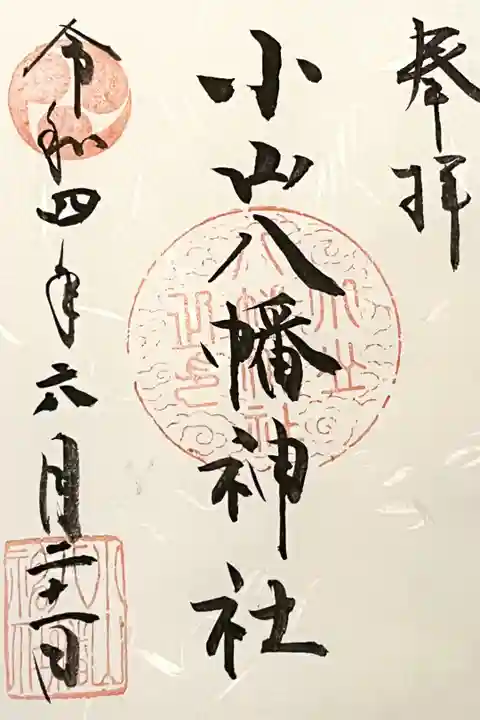 奉拝
小山八幡神社
令和四年六月二十一日